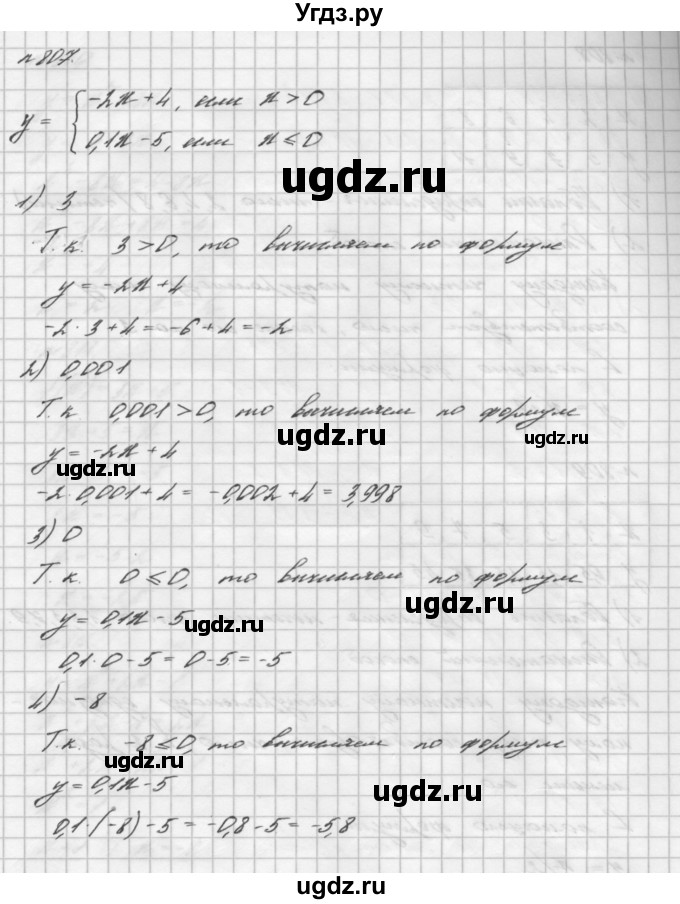 Угдз.ру
n 807.
y = { -2x + 4, или x > 0
0,1x - 5, или x ≤ 0
ugdz.ru
1) 3
Т.к. 3 > 0, то вычисляем по формуле
y = -2x + 4
-2 · 3 + 4 = -6 + 4 = -2
2) 0,001
Т.к 0,001 > 0, то вычисляем по формуле
ugdz.ru ugdz.ru
y = -2x + 4
ugdz.ru
-2 · 0,001 + 4 = -0,002 + 4 = 3,998
3) 0
Т.к. 0 ≤ 0, то вычисляем по формуле
ugdz.ru
y = 0,1x - 5
ugdz.ru
0,1 · 0 - 5 = 0 - 5 = -5
4) -8
Т.к. -8 ≤ 0, то вычисляем по формуле
ugdz.ru
y = 0,1x - 5
ugdz.ru
0,1 · (-8) - 5 = -0,8 - 5 = -5,8
ugdz.ru